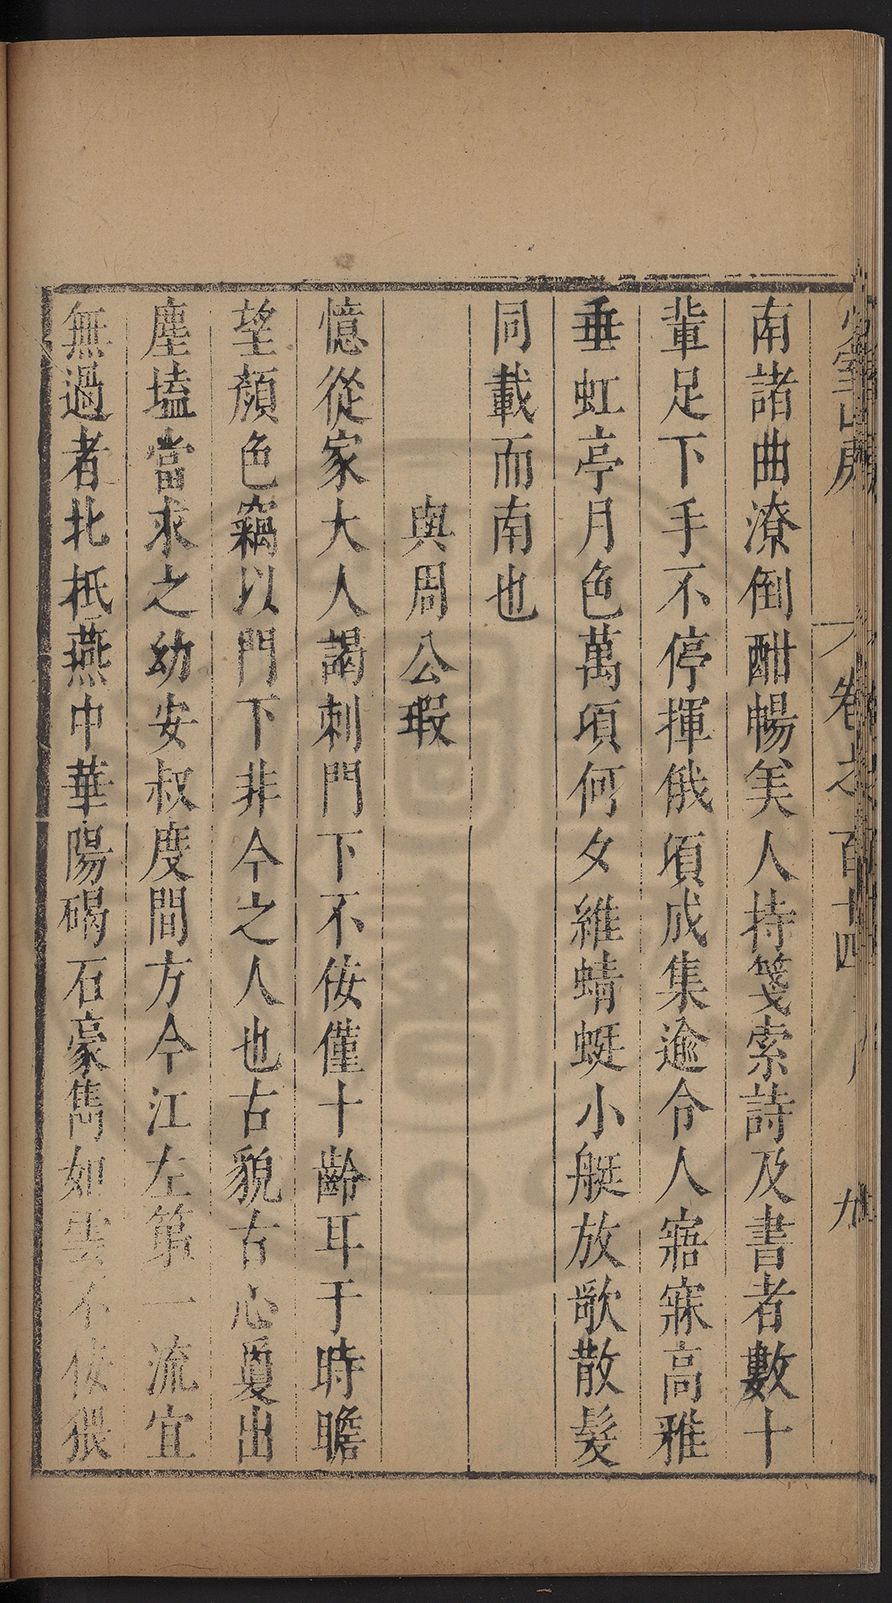 卷之百十四
九
南諸曲潦倒酣暢美人持箋索詩及書者數十
輩足下手不停揮俄頃成集逾令人寤寐高雅
垂虹亭月色萬頃何夕維蜻蜓小艇放歌散髮
同載而南也
與周公瑕
憶從家大人謁刺門下不佞僅十齡耳于時瞻
望顏色竊以門下非今之人也古貌古心敻出
塵壒當求之幼安叔度間方今江左第一流宜
無過者北抵燕中華陽碣石豪雋如雲不佞猥